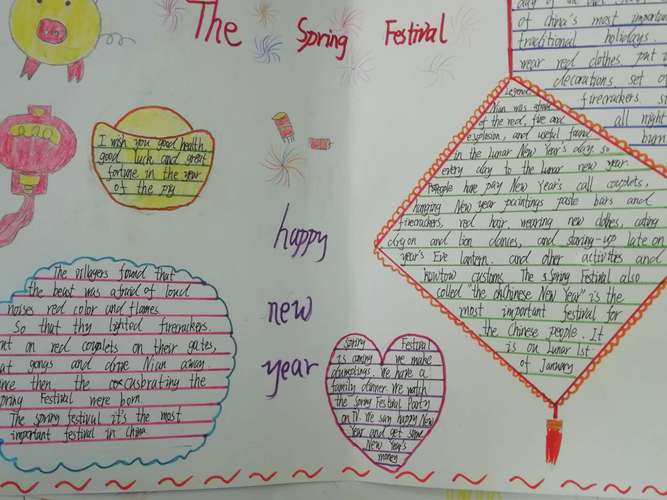 The Spring Festival
of china's most importa
traditional holidays.
wear red clothes, put
decorations set of
firecrackers.
all night
burn
I wish you good health
good luck and great
fortune in the year
of the pig
happy
new
year
Legend
Nian was afraid
of the red, fire and
explosion, and useful found
in the Lunar New Year's day, so
every day to the lunar new year
People have pay New Year's call couplets,
hanging New year paintings paste bars and
firecrackers, red hair, wearing new clothes, eating
dragon and lion dances, and staring-up late on
year's Eve lantern. and other activities and
howtow customs. The Spring Festival also
called "the Chinese New Year" is the
most important festival for
the Chinese people. It
is on Lunar 1st
of January
The villagers found that
the beast was afraid of loud
noises red color and flames.
So that thy lighted firecrackers.
on red couplets on their gates,
gongs and drive Nian away
then the brating the
Spring Festival were born
The spring festival it's the most
important festival in China
Spring Festival
is coming we make
dumplings. We have a
family dinner. We watch
the Spring Festival Party
on TV. We sam happy New
Year and get some
New Year's
money